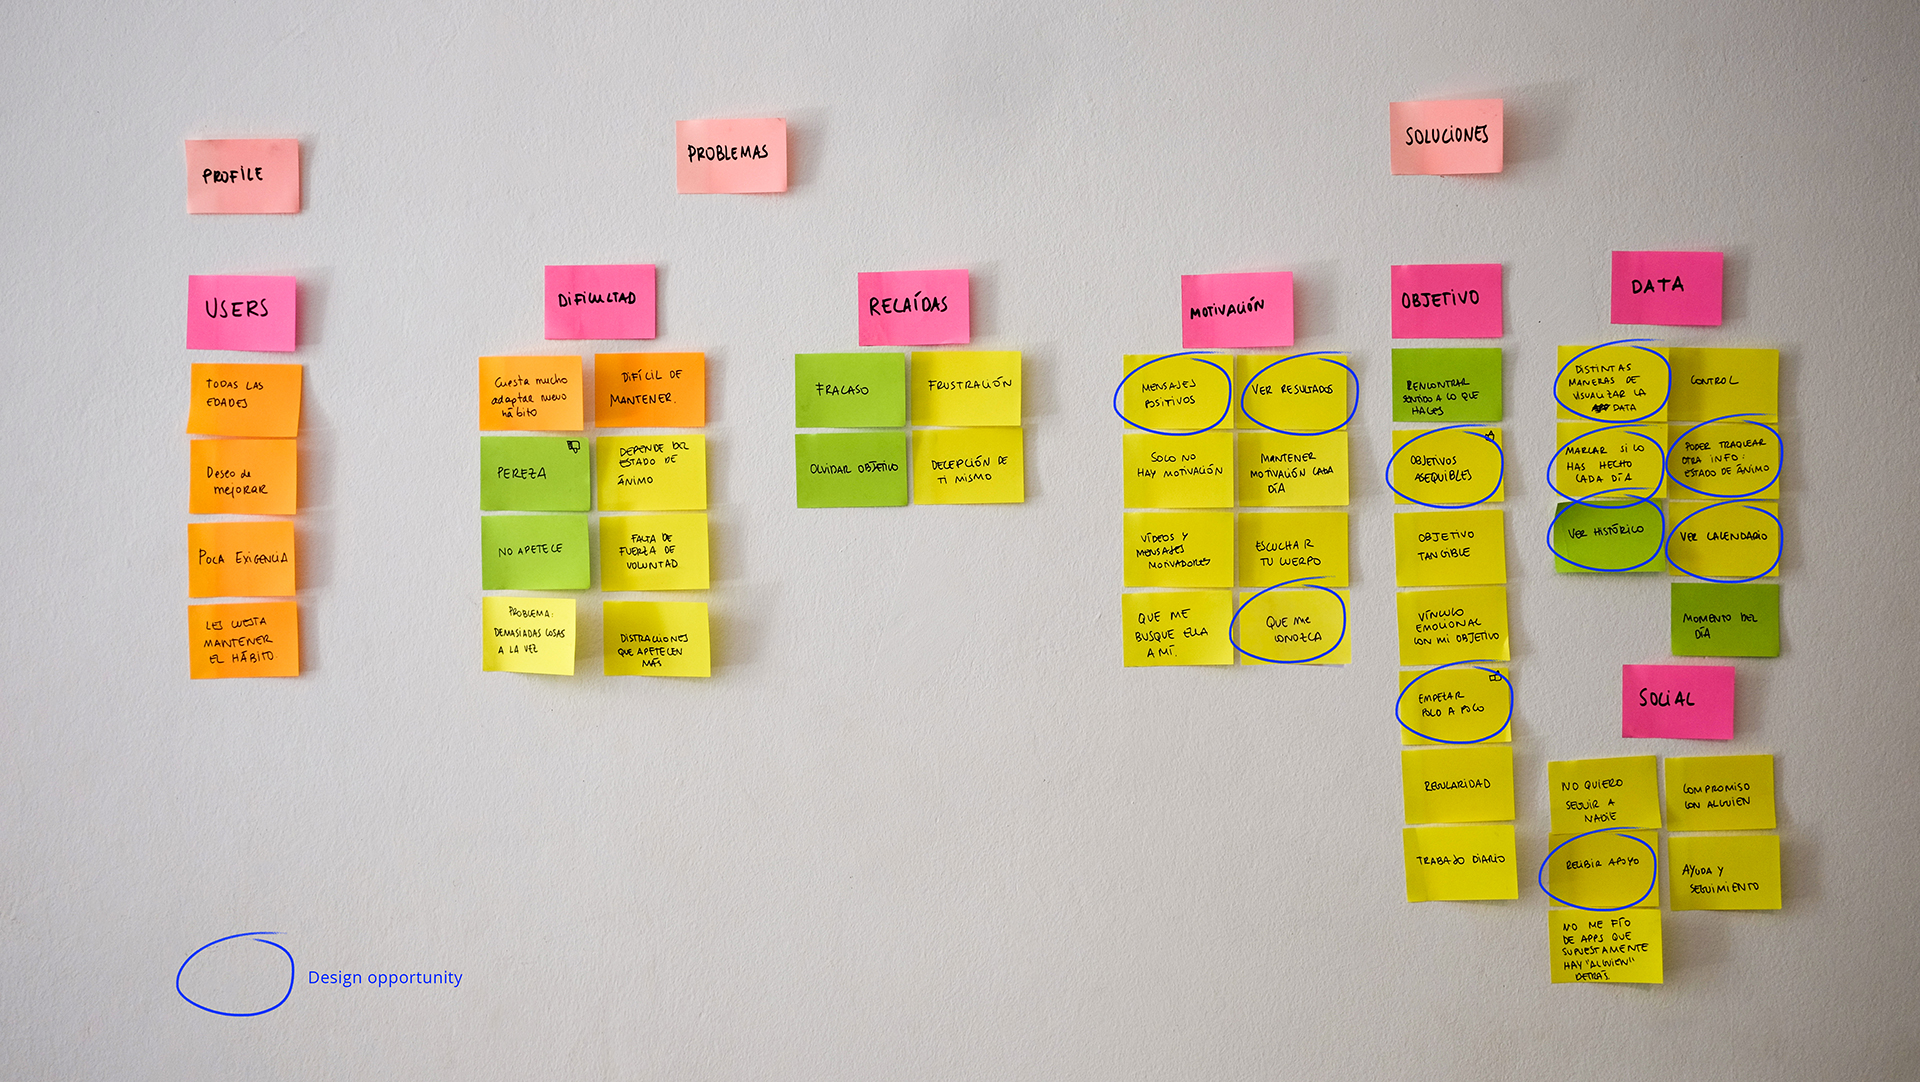 PROFILE
USERS
TODAS LAS
EDADES
Deseo de
mejorar
POCA EXIGENCIA
LES CUESTA
MANTENER
EL HÁBITO.
PROBLEMAS
DIFICULTAD
Cuesta mucho
adaptar nuevo
hábito
DIFÍCIL DE
MANTENER.
PEREZA
DEPENDE DEL
ESTADO DE
ÁNIMO
NO APETECE
FALTA DE
FUERZA DE
VOLUNTAD
PROBLEMA:
DEMASIADAS COSAS
A LA VEZ
DISTRACIONES
QUE APETECEN
MÁS
RECAÍDAS
FRACASO
FRUSTRACIÓN
OLVIDAR OBJETIVO
DECEPCIÓN DE
TI MISMO
SOLUCIONES
MOTIVACIÓN
MENSAJES
POSITIVOS
VER RESULTADOS
SOLO NO
HAY MOTIVACIÓN
MANTENER
MOTIVACIÓN CADA
DÍA
VÍDEOS Y
MENSAJES
MOTIVADORES
ESCUCHAR
TU CUERPO
QUE ME
BUSQUE ELLA
A MÍ.
QUE ME
CONOZCA
OBJETIVO
RENCONTRAR
SENTIDO A LO QUE
HACES
OBJETIVOS
ASEQUIBLES
OBJETIVO
TANGIBLE
VÍNCULO
EMOCIONAL
CON MI OBJETIVO
EMPEZAR
POCO A POCO
REGULARIDAD
TRABAJO DIARIO
DATA
DISTINTAS
MANERAS DE
VISUALIZAR LA
DATA
CONTROL
MARCAR SI LO
HAS HECHO
CADA DÍA
PODER TRAQUEAR
OTRA INFO:
ESTADO DE ÁNIMO
VER HISTÓRICO
VER CALENDARIO
MOMENTO DEL
DÍA
SOCIAL
NO QUIERO
SEGUIR A
NADIE
COMPROMISO
CON ALGUIEN
RECIBIR APOYO
AYUDA Y
SEGUIMIENTO
NO ME FÍO
DE APPS QUE
SUPUESTAMENTE
HAY "ALGUIEN"
DETRÁS.
Design opportunity